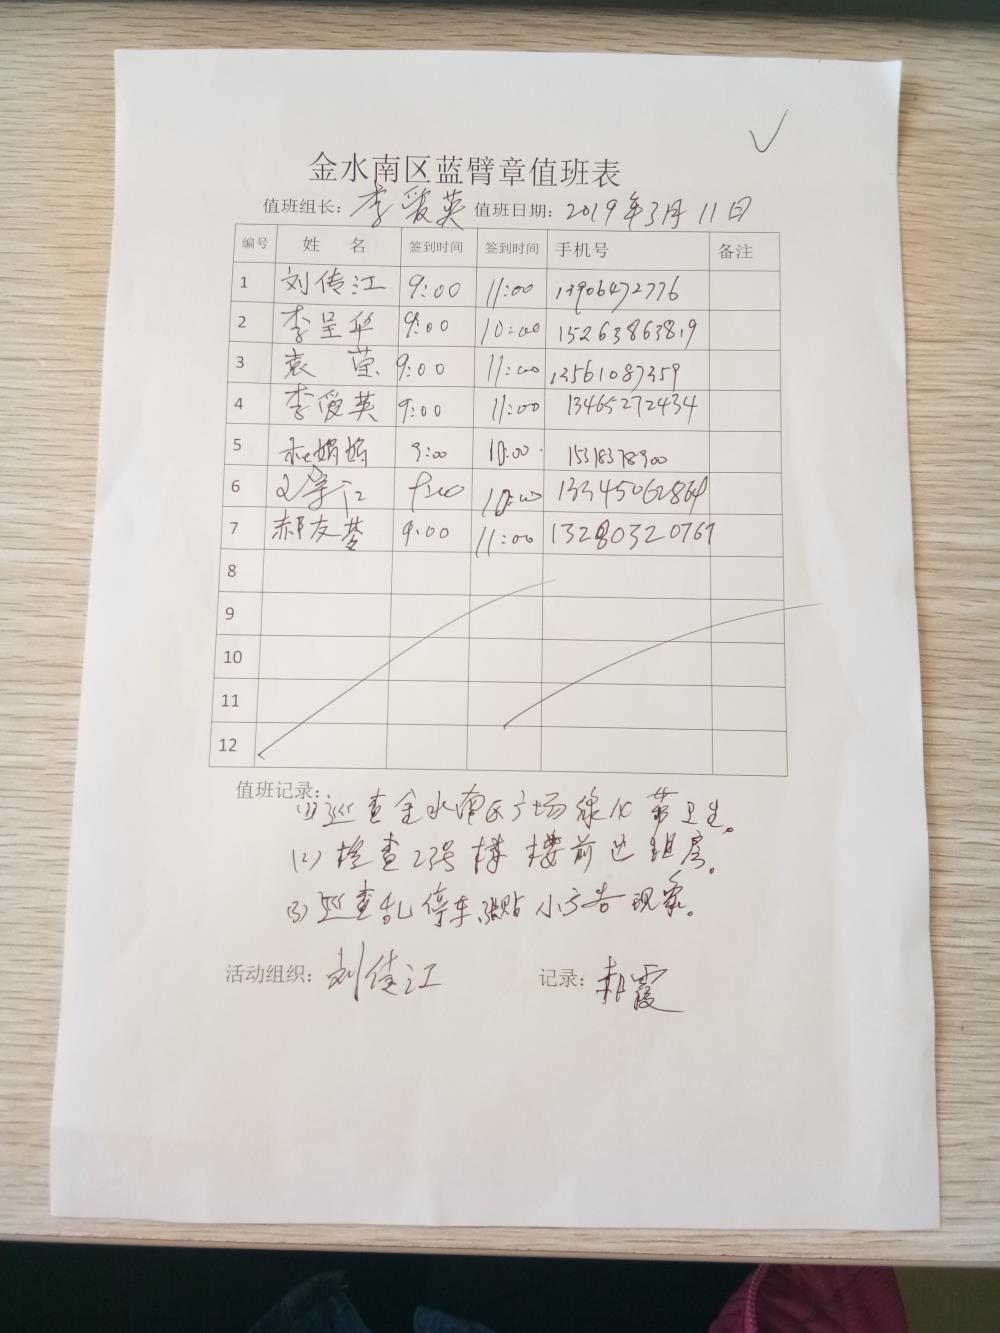 金水南区蓝臂章值班表
值班组长：李爱英 值班日期：2019年3月11日
编号 姓 名 签到时间 签到时间 手机号 备注
1 刘传江 9:00 11:00 13906472776
2 李呈华 9:00 10:00 15263863819
3 袁 莹 9:00 11:00 13561087359
4 李爱英 9:00 11:00 13465272434
5 杜娟娟 9:00 10:00 15318378900
6 9:00 10:00 13345062864
7 郝友萝 9:00 11:00 13280320767
8
9
10
11
12
值班记录：
(1)巡查金水南区广场绿化带卫生。
(2)检查23号楼楼前出租房。
(3)巡查乱停车、张贴小广告现象。
活动组织：刘传江 记录：郝霞